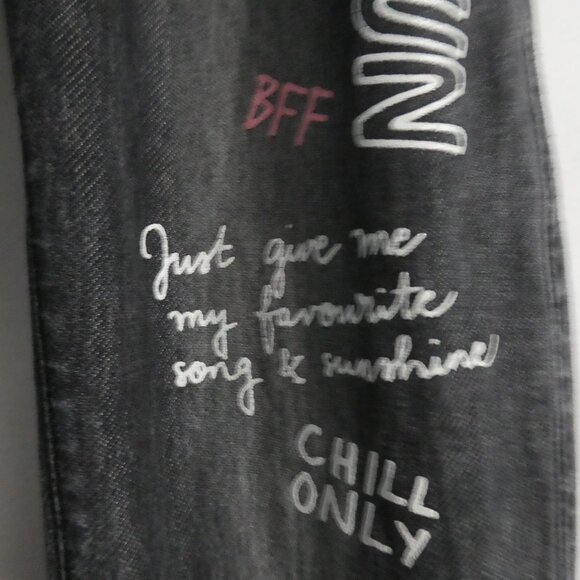 UN
BFF
Just give me
my favourite
song & sunshine
CHILL
ONLY